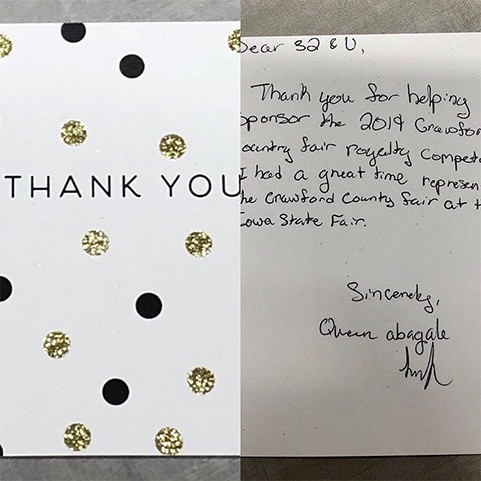 THANK YOU
Dear 32 & U,
Thank you for helping
sponsor the 2019 Crawford
County fair royalty Competi
I had a great time represen
the Crawford County fair at t
Iowa State Fair.
Sincerely,
Queen abagale